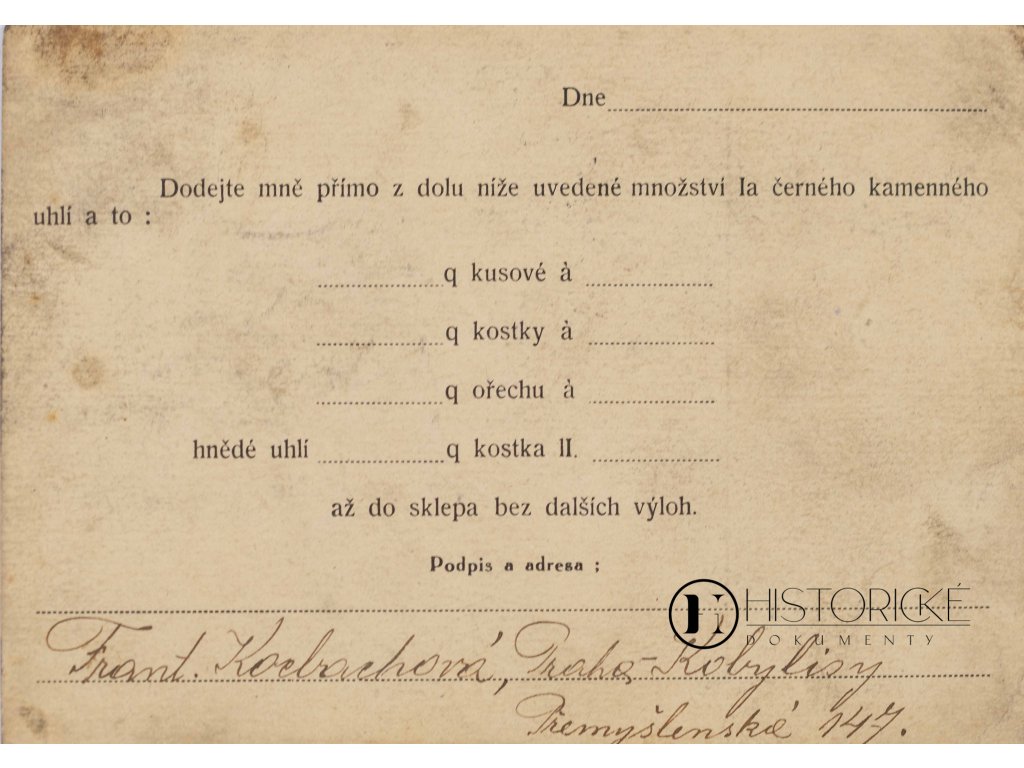 Dne
Dodejte mně přímo z dolu níže uvedené množství Ia černého kamenného
uhlí a to :
q kusové à
q kostky à
q ořechu à
hnědé uhlí q kostka II.
až do sklepa bez dalších výloh.
Podpis a adresa ;
HISTORICKÉ
DOKUMENTY
Frant. Kocbachová, Praha-Kobylisy
Přemyšlenská 147.